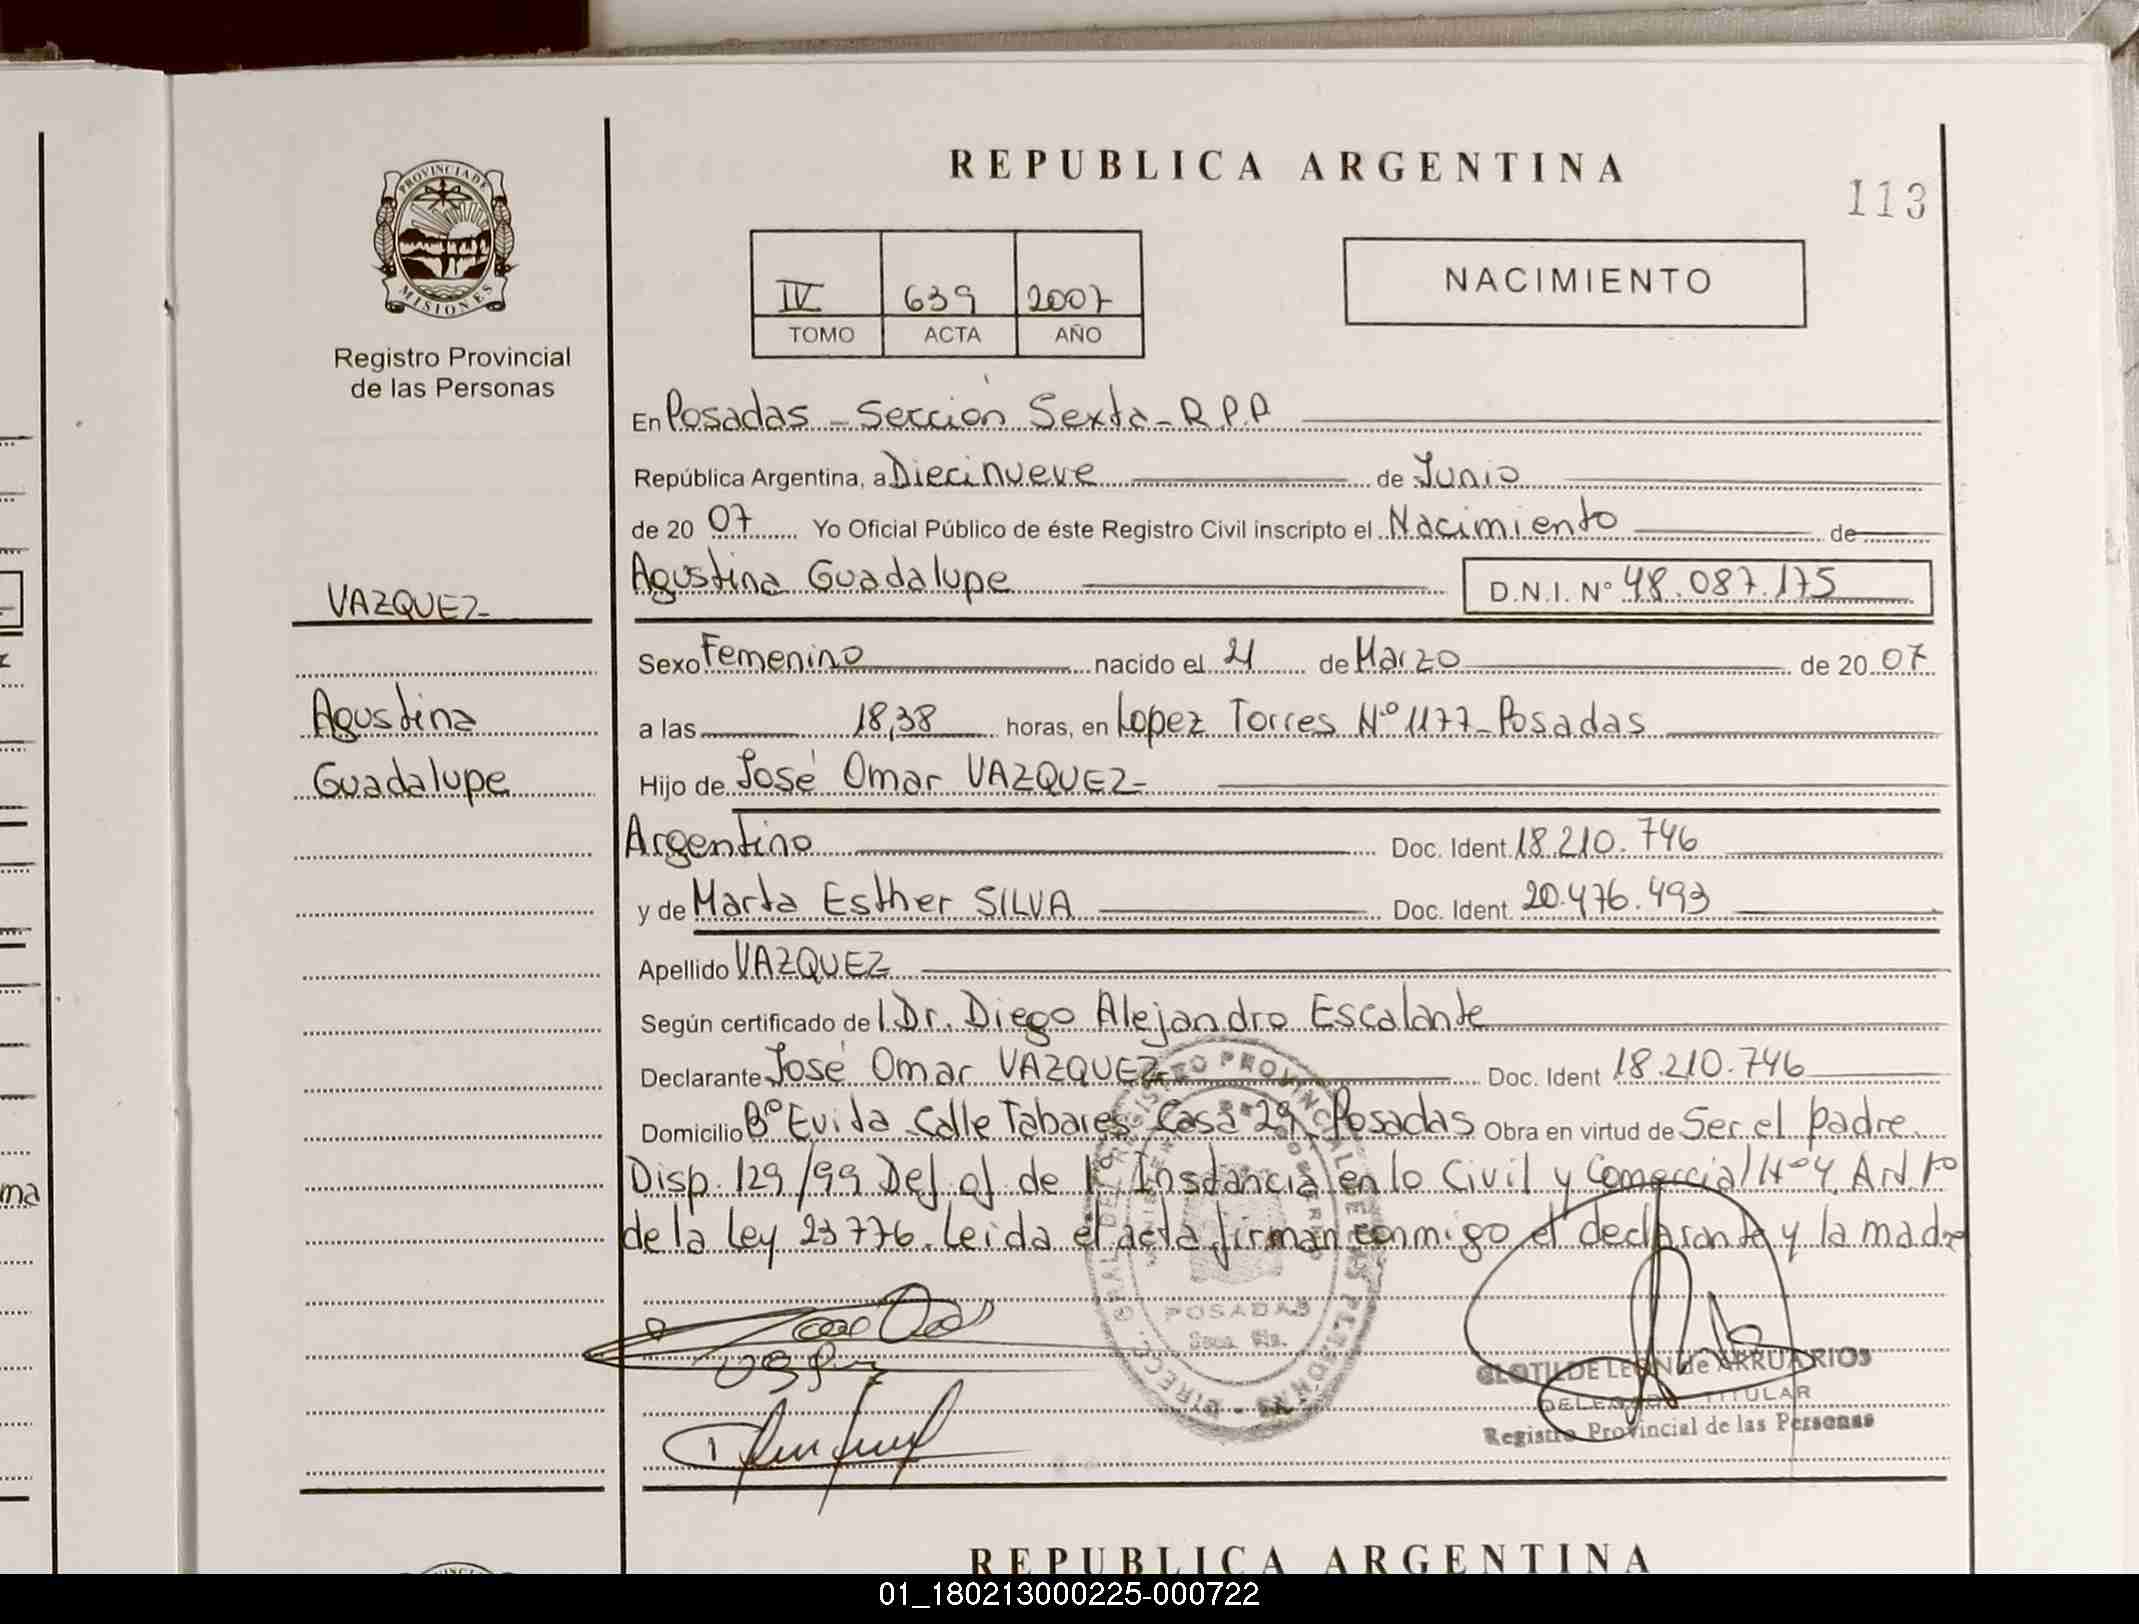 REPUBLICA ARGENTINA
113
PROVINCIA DE
MISIONES
Registro Provincial
de las Personas
IV 639 2007
TOMO ACTA AÑO
NACIMIENTO
En Posadas - Sección Sexta - R.P.P
República Argentina, a Diecinueve de Junio
de 20 07 Yo Oficial Público de éste Registro Civil inscripto el Nacimiento de
VAZQUEZ
Agustina Guadalupe D.N.I. N° 48.087.175
Sexo Femenino nacido el 21 de Marzo de 20 07
Agustina
a las 18,38 horas, en Lopez Torres N° 1177 - Posadas
Guadalupe
Hijo de José Omar VAZQUEZ
Argentino Doc. Ident. 18.210.746
y de Marta Esther SILVA Doc. Ident. 20.476.493
Apellido VAZQUEZ
Según certificado del Dr. Diego Alejandro Escalante
Declarante José Omar VAZQUEZ Doc. Ident 18.210.746
Domicilio B° Evita Calle Tabares Casa 29 Posadas Obra en virtud de Ser el padre.
Disp. 129/99 Def of de 1° Instancia en lo Civil y Comercial N° 4, Art 1°
de la Ley 23776. Leida el acta firman conmigo el declarante y la madre
POSADAS
CLOTILDE LEON de ARRUA RIOS
DELEGADA TITULAR
Registro Provincial de las Personas
REPUBLICA ARGENTINA
01_180213000225-000722